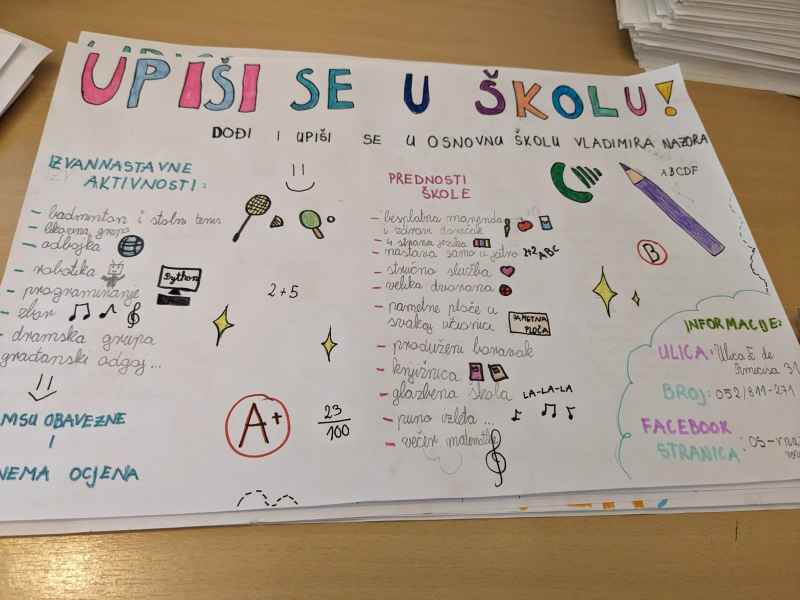 UPIŠI SE U ŠKOLU!
DOĐI I UPIŠI SE U OSNOVNU ŠKOLU VLADIMIRA NAZORA
IZVANNASTAVNE
AKTIVNOSTI:
- badminton i stolni tenis
- likovna grupa
- odbojka
- robotika
- programiranje
Python
- zbor
- dramska grupa
građanski odgoj...
NISU OBAVEZNE
I
NEMA OCJENA
2+5
A+
23
100
PREDNOSTI
ŠKOLE
- besplatna marenda
i zdravi doručak
- 4 strana jezika
- nastava samo u jutro
2+2 ABC
- stručna služba
- velika dvorana
- pametne ploče u
svakoj učionici
PAMETNA
PLOČA
- produženi boravak
- knjižnica
- glazbena škola
LA-LA-LA
- puno izleta...
- večer matematike
ABCDF
B
INFORMACIJE:
ULICA: Ulica
31
BROJ: 052/811-271
FACEBOOK
STRANICA: OS-